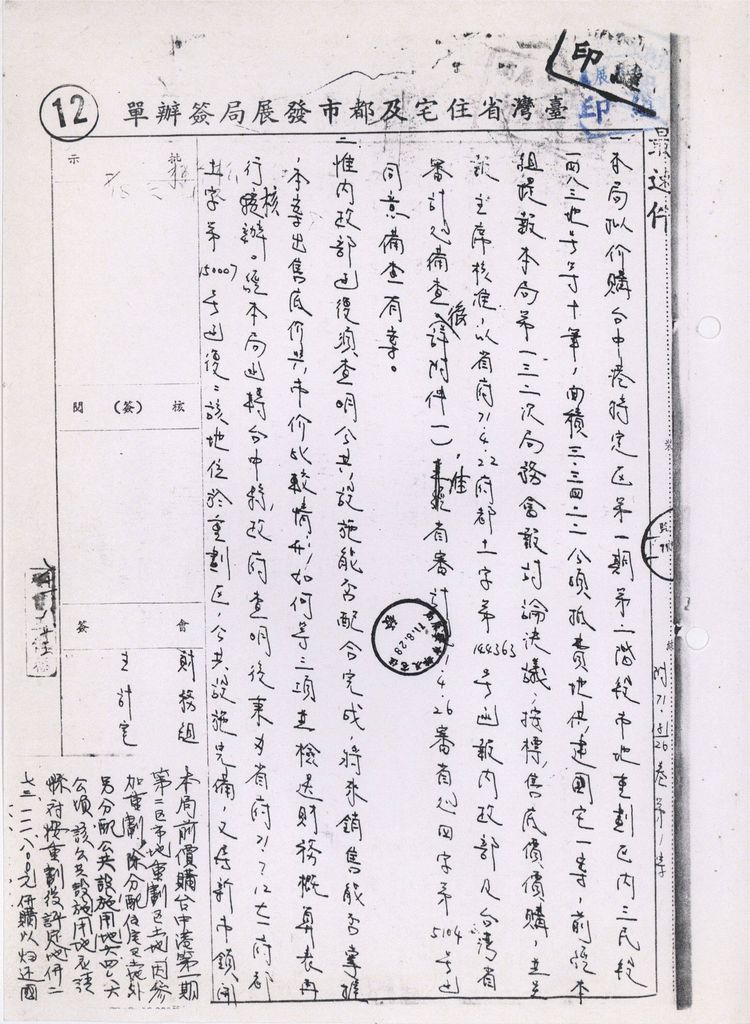 臺灣省住宅及都市發展局簽辦單
12
最速件
一、本局擬价購台中港特定区第一期第二階段市地重劃区内三民段
一四八三地号等十筆，面積三.三四二二公頃抵費地供建国宅一案，前經本
組提報本局第一三二次局務會報討論決議：按標售底價價購，並
主席核准，以省府71.4.22府都土字第144363号函報內政部及台湾省
審計处備查後(詳附件一)，准省審計71.4.26審省处四字第5104号函
同意備查有案。
二、惟內政部函復須查明公共設施能否配合完成，將來銷售能否掌握
，本案出售底价與市价比較情形如何等三項並檢送財務概算表再
行核辦。經本局函轉台中縣政府查明後東71.7.12六一府都
土字第150007号函復：該地位於重劃区，公共設施完備，又係新市鎮
批示
核(簽)閱
會簽
財務組
主計室
71.8.28
印
本局前價購台中港第一期
第二区市地重劃区土地因參
加重劃，除分配住宅区土地外
另分配公共設施用地
公頃，該公共設施用地必須
縣府按重劃後評定地價